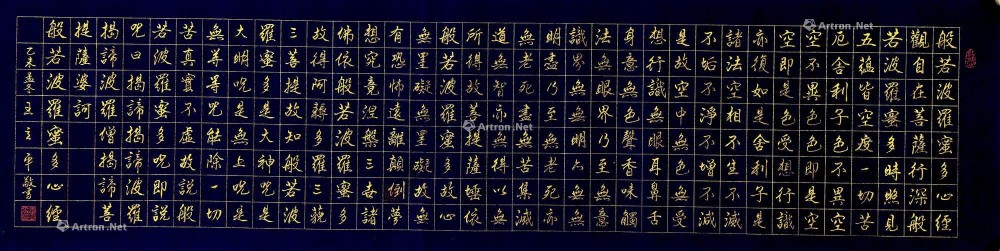 般若波羅蜜多心經
觀自在菩薩行深般
若波羅蜜多時照見
五蘊皆空度一切苦
厄舍利子色不異空
空不異色色即是空
空即是色受想行識
亦復如是舍利子是
諸法空相不生不滅
不垢不淨不增不減
是故空中無色無受
想行識無眼耳鼻舌
身意無色聲香味觸
法無眼界乃至無意
識界無無明亦無無
明盡乃至無老死亦
無老死盡無苦集滅
道無智亦無得以無
所得故菩提薩埵依
般若波羅蜜多故心
無罣礙無罣礙故無
有恐怖遠離顛倒夢
想究竟涅槃三世諸
佛依般若波羅蜜多
故得阿耨多羅三藐
三菩提故知般若波
羅蜜多是大神咒是
大明咒是無上咒是
無等等咒能除一切
苦真實不虛故說般
若波羅蜜多咒即說
咒曰揭諦揭諦波羅
揭諦波羅僧揭諦菩
提薩婆訶
般若波羅蜜多心經
乙未孟冬
Artron.Net
Artron.Net
Artron.Net
Artron.Net
Artron.Net